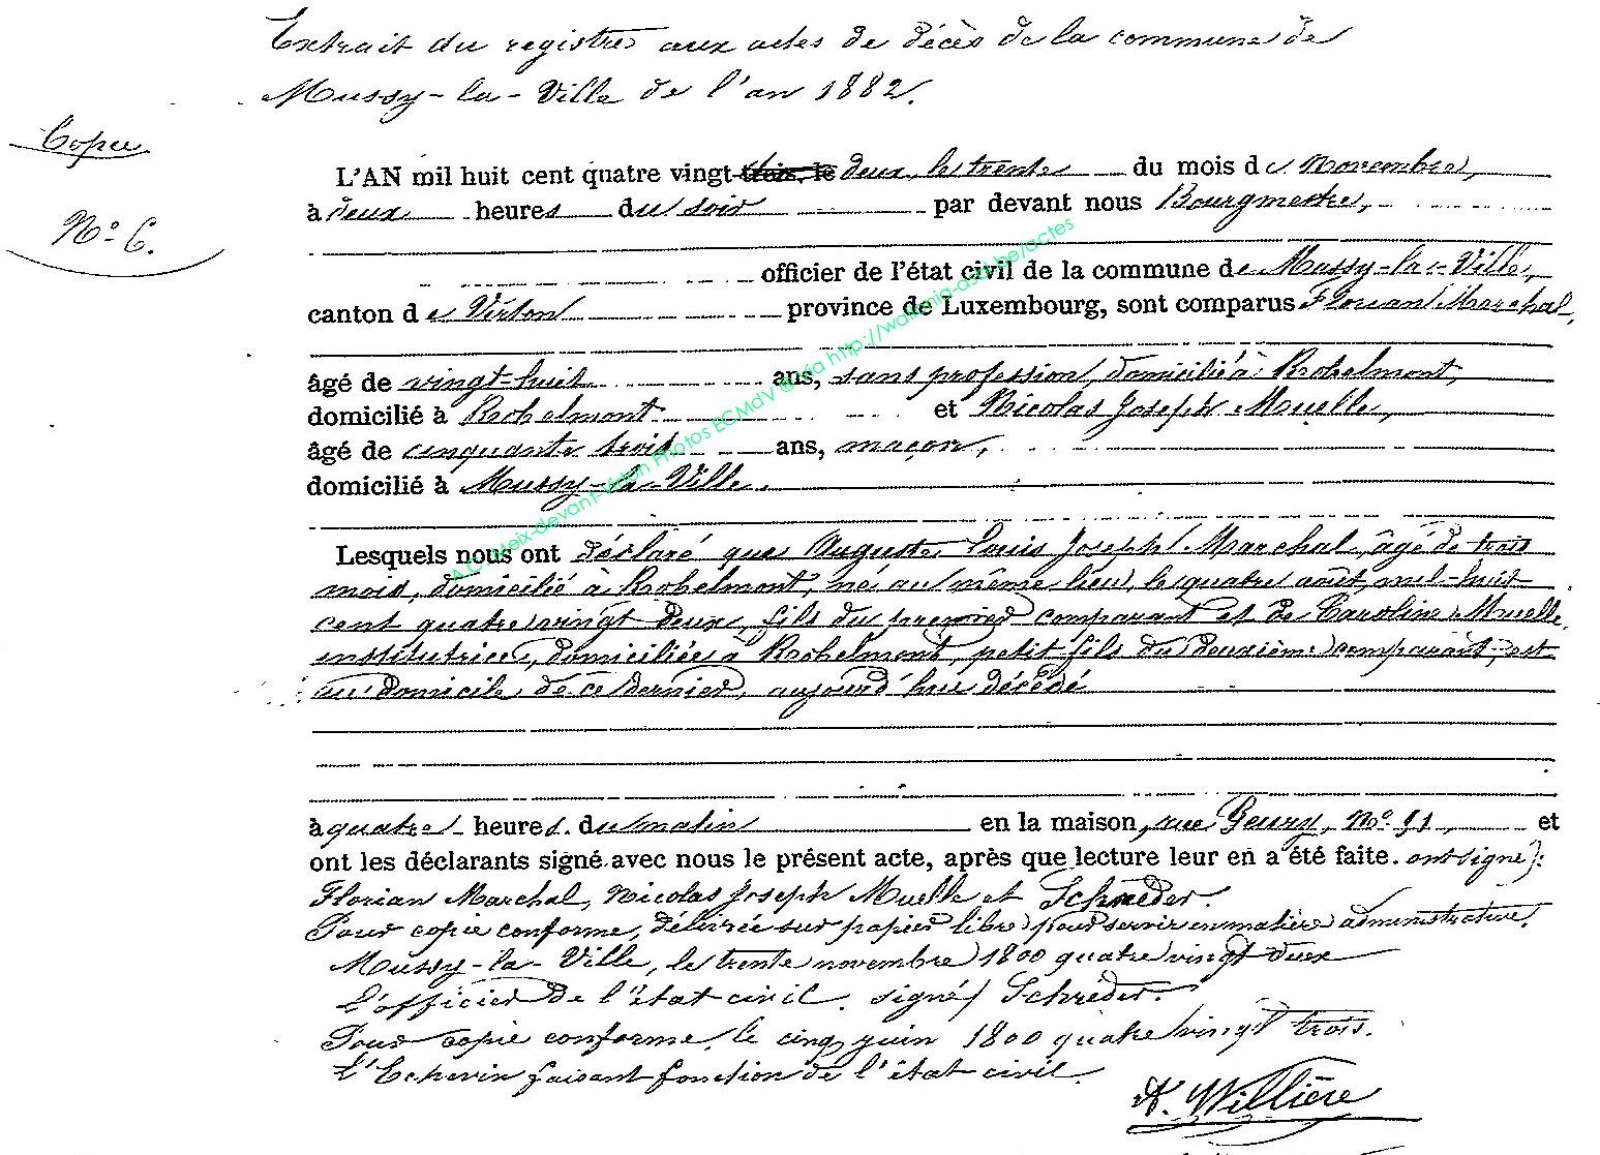 Extrait du registre aux actes de décès de la commune de
Mussy-la-Ville de l'an 1882.
Copie
N° 6.
L'AN mil huit cent quatre vingt trois, le deux, le trente du mois de Novembre,
à deux heures du soir par devant nous Bourgmestre,
officier de l'état civil de la commune de Mussy-la-Ville,
canton de Virton province de Luxembourg, sont comparus Florian Marchal,
âgé de vingt-huit ans, sans profession, domicilié à Robelmont,
domicilié à Robelmont et Nicolas Joseph Muelle,
âgé de cinquante trois ans, maçon,
domicilié à Mussy-la-Ville.
Lesquels nous ont déclaré que Auguste Louis Joseph Marchal, âgé de trois
mois, domicilié à Robelmont, né au même lieu, le quatre août mil-huit
cent quatre vingt deux, fils du premier comparant et de Caroline Muelle,
institutrice, domiciliée à Robelmont, petit fils du deuxième comparant, est
au domicile de ce dernier, aujourd'hui décédé
à quatre heures du matin en la maison, rue N° 91, et
ont les déclarants signé avec nous le présent acte, après que lecture leur en a été faite. ont signé):
Florian Marchal, Nicolas Joseph Muelle et Schréder.
Pour copie conforme, délivrée sur papier libre pour servir en matière administrative.
Mussy-la-Ville, le trente novembre 1800 quatre vingt deux
L'officier de l'état civil. signé) Schréder.
Pour copie conforme, le cinq juin 1800 quatre vingt trois.
L'Echevin faisant fonction de l'état civil.
A. Willière
A.C. Meix-devant-Virton Photos ECMdV @ via http://wallonia-asbl.be/actes